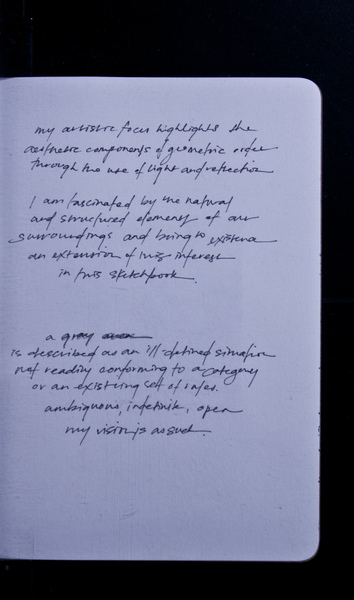 my artistic focus highlights the
aesthetic components of geometric order
through the use of light and reflection
I am fascinated by the natural
and structured elements of our
surroundings and bring to existence
an extension of this interest
in this sketchbook.
a gray area
is described as an ill-defined situation
not readily conforming to a category
or an existing set of rules.
ambiguous, indefinite, open
my vision is as such.